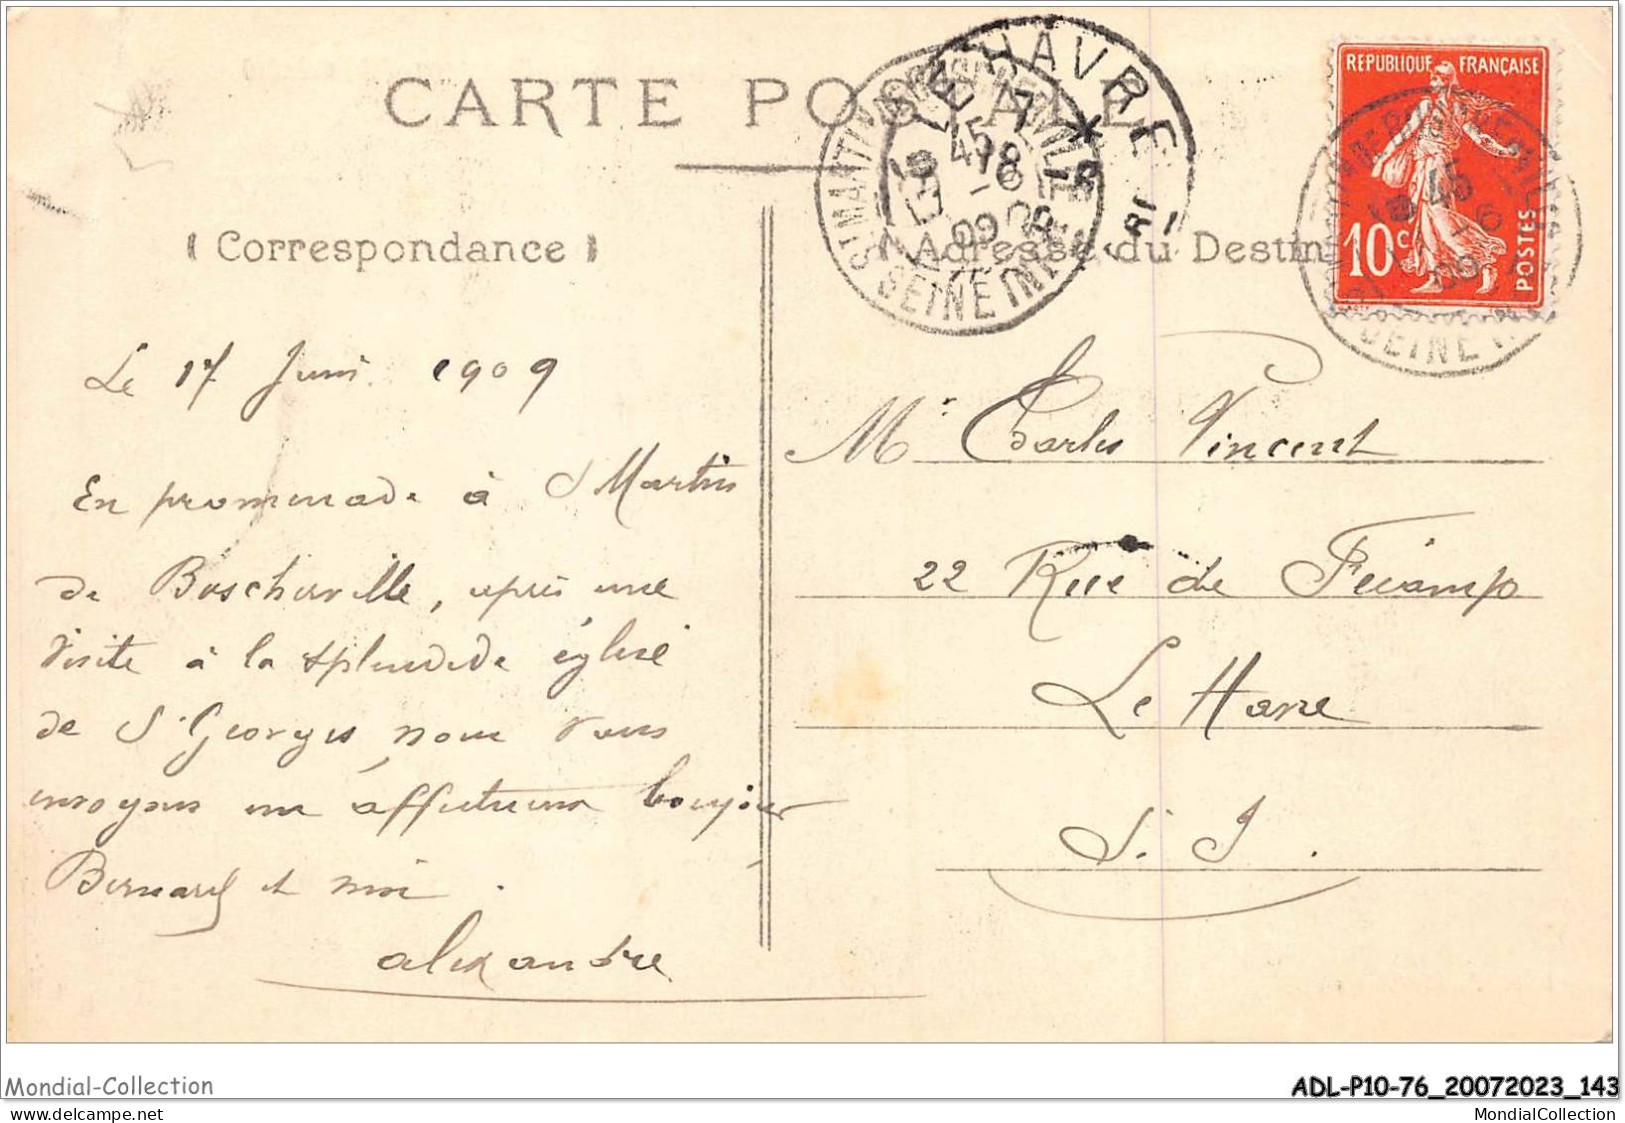 CARTE POSTALE
Correspondance
Adresse du Destin
REPUBLIQUE FRANÇAISE
10c
POSTES
LE HAVRE
SEINE INF
Le 17 Juin 1909
En promenade à St Martin
de Boscherville, après une
visite à la splendide église
de St Georges nous vous
envoyons un affectueux bonjour
Bernard et moi.
Alexandre
Mr Charles Vincent
22 Rue de Fécamp
Le Havre
S. I.
Mondial-Collection
ADL-P10-76_20072023_143
MondialCollection